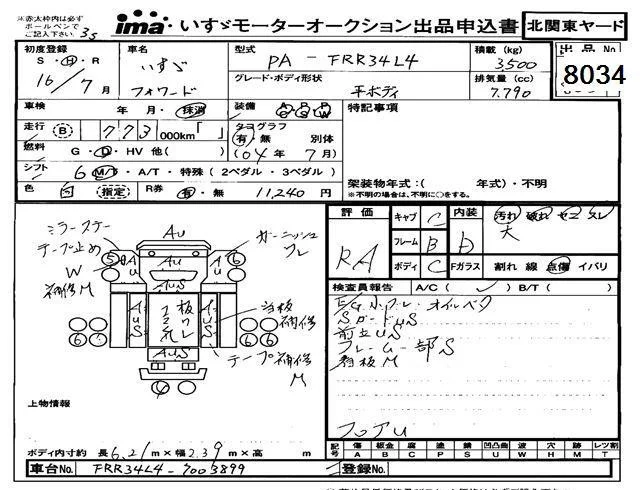 ※赤太枠内は必ず
ボールペンで
ご記入下さい 35
ima いすゞモーターオークション出品申込書 北関東ヤード
初度登録 車名 型式 積載 (kg) 出品No
S・H・R いすゞ PA - FRR34L4 3,500 8034
16/7月 フォワード グレード・ボディ形状 平ボディ 排気量 (cc) 7.790
車検 年・月・抹消 装備 特記事項
走行 B 773,000km「 」 タコグラフ 有・無 別体
燃料 G・D・HV 他( ) (04年 7月)
シフト 6 M/T・A/T・特殊 (2ペダル・3ペダル) 架装物年式:( 年式)・不明
※不明の場合は、不明に○をする。
色 指定 R券 有・無 11,240円
評価 RA キャブ C 内装 D 汚れ 破れ セコ タレ
大
フレーム B
ボディ C Fガラス 割れ 線 点傷 イバリ
検査員報告 A/C( ) B/T( )
E/G小プレ・オイルベタ
SガードUS
前立US
フレーム一部S
看板M
フロアU
ミラーステー
テープ止め
W
補修M
AU
ガーニッシュ
フレ
5 AU AU AU 6
AUS
AUS 板ワレ AUS
当板
補修
6 6 6 6
テープ補修
M
AUS
上物情報
ボディ内寸約 長 6.21m×幅 2.39m×高 m
傷 板金 腐 塗 錆 凹凸曲 波 穴 跡 レツ割
A B C P S U W H M T
車台No. FRR34L4-7003899 登録No.